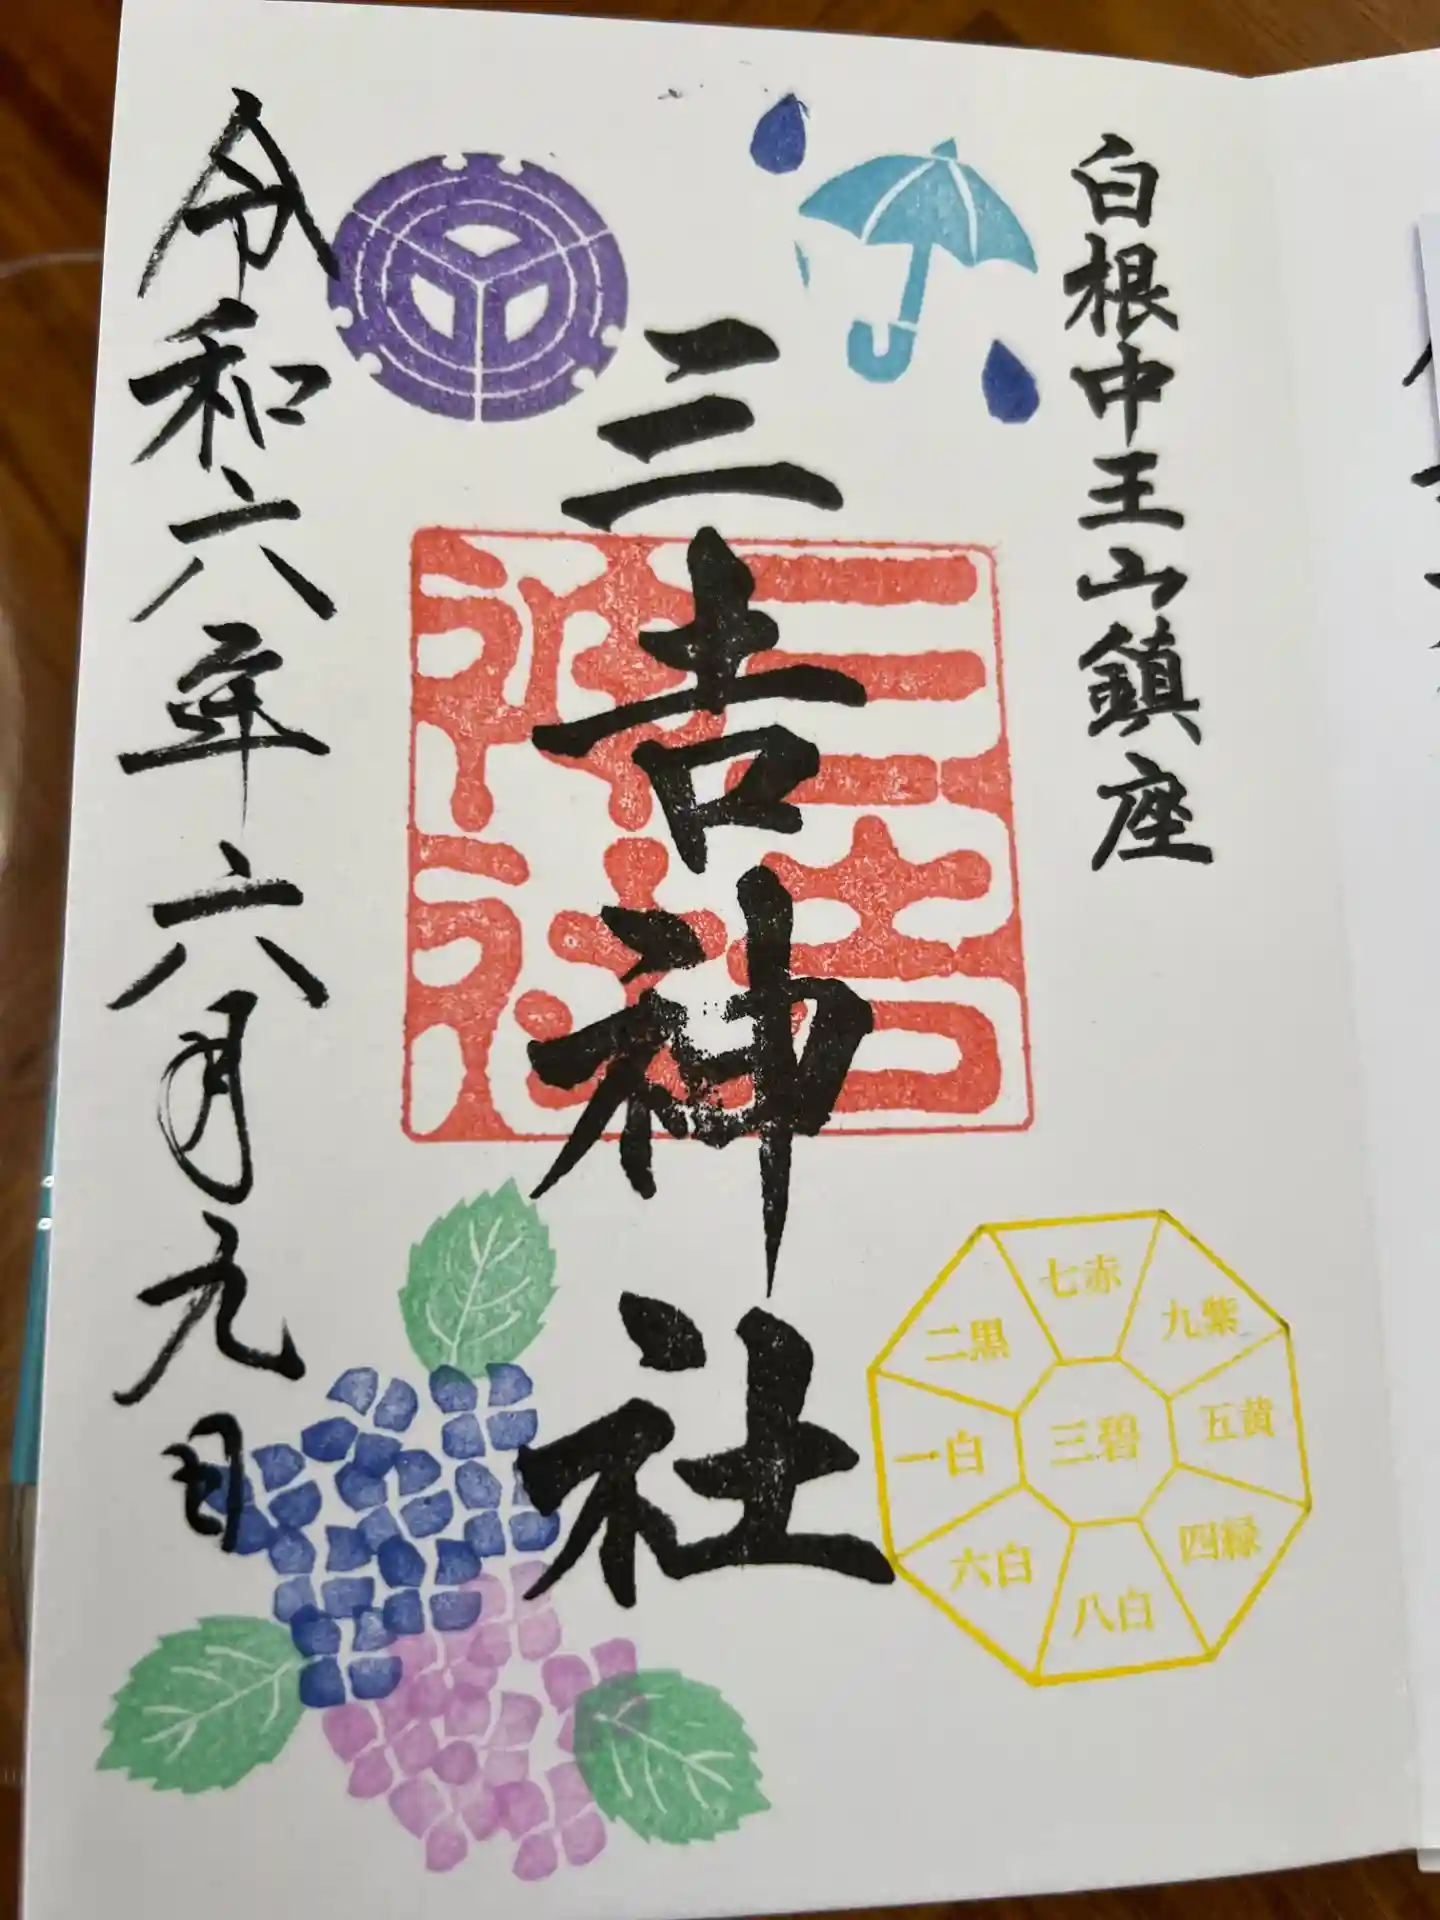 白根中王山鎮座
三吉神社
三吉神社
令和六年六月九日
七赤
二黒
九紫
一白
三碧
五黄
六白
四緑
八白